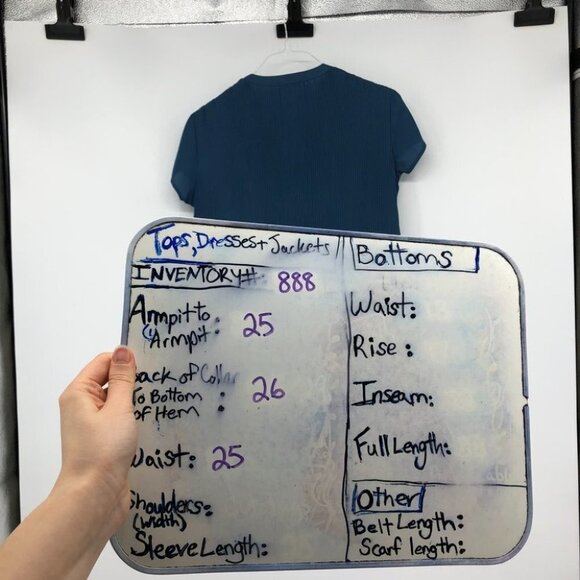 Tops, Dresses + Jackets
INVENTORY#: 888
Armpit to
Armpit: 25
Back of Collar
to Bottom
of Hem : 26
Waist: 25
Shoulders:
(width)
Sleeve Length:
Bottoms
Waist:
Rise:
Inseam:
Full Length:
Other
Belt Length:
Scarf length: